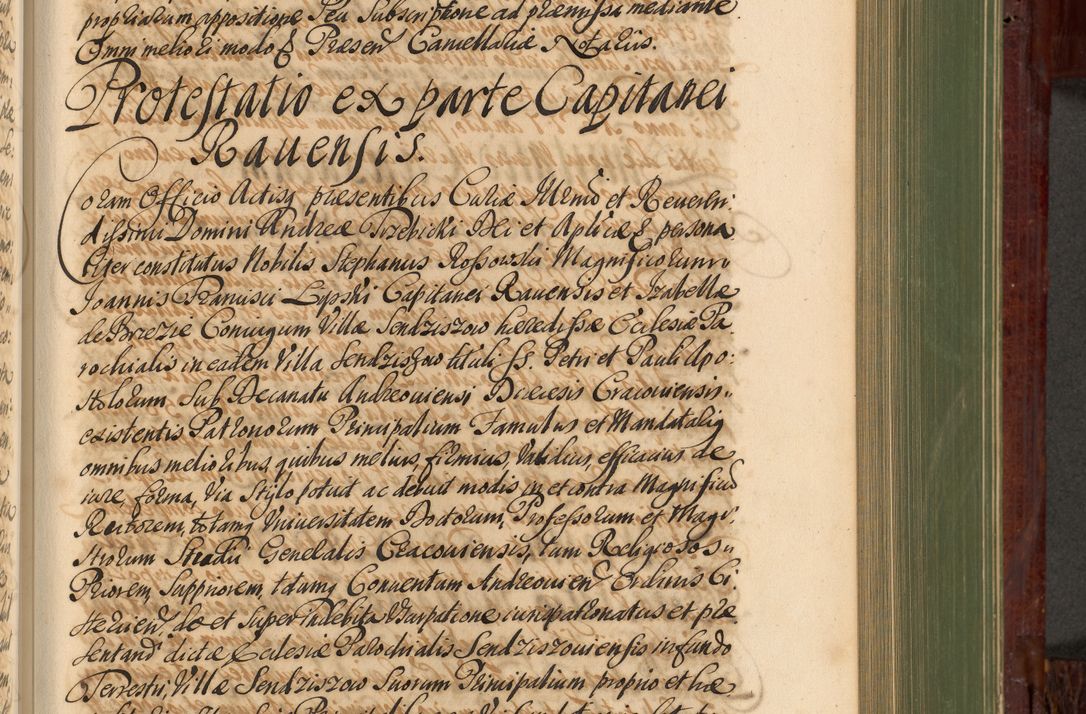 propriarum appositione seu Subscriptione ad præmissa mediante
Omni meliori modo & Præsen Cancellariæ Notariis.
Protestatio ex parte Capitanei
Rauensis.
Coram Officio Actisq præsentibus Curiæ Illrmi et Reueren:
dissimi Domini Andreæ Trzebicki Dei et Aplicæ & persona:
liter constitutus Nobilis Stephanus Rossowski Magnificorum
Joannis Francisci Lipski Capitanei Rauensis et Izabellæ
de Brzezie Coniugum Villæ Sendziszow hæredissæ Ecclesiæ Pa:
rochialis in eadem Villa Sendziszow tituli SS. Petri et Pauli Apo:
stolorum Sub Decanatu Andreouiensi Diæcesis Cracouiensis
existentis Patronorum Principalium Famulus et Mandatariq
omnibus melioribus, quibus melius, firmius, Validius, efficacius de
iure, forma, Via Stylo potuit ac debuit modis in et contra Magnificu
Rectorem, totamq Vniuersitatem Doctorum, Professorum et Magi:
strorum Studii Generalis Cracouiensis, tum Religiosos
Priorem, Suppriorem, totamq Conuentum Andreouien Ordinis Ci
stercien, de et Super indebita Vsurpatione iurispatronatus et præ
sentand dictæ Ecclesiæ Parochialis Sendziszouiensis in fundo
Terrestri, Villæ Sendziszow Suorum Principalium proprio et hæ